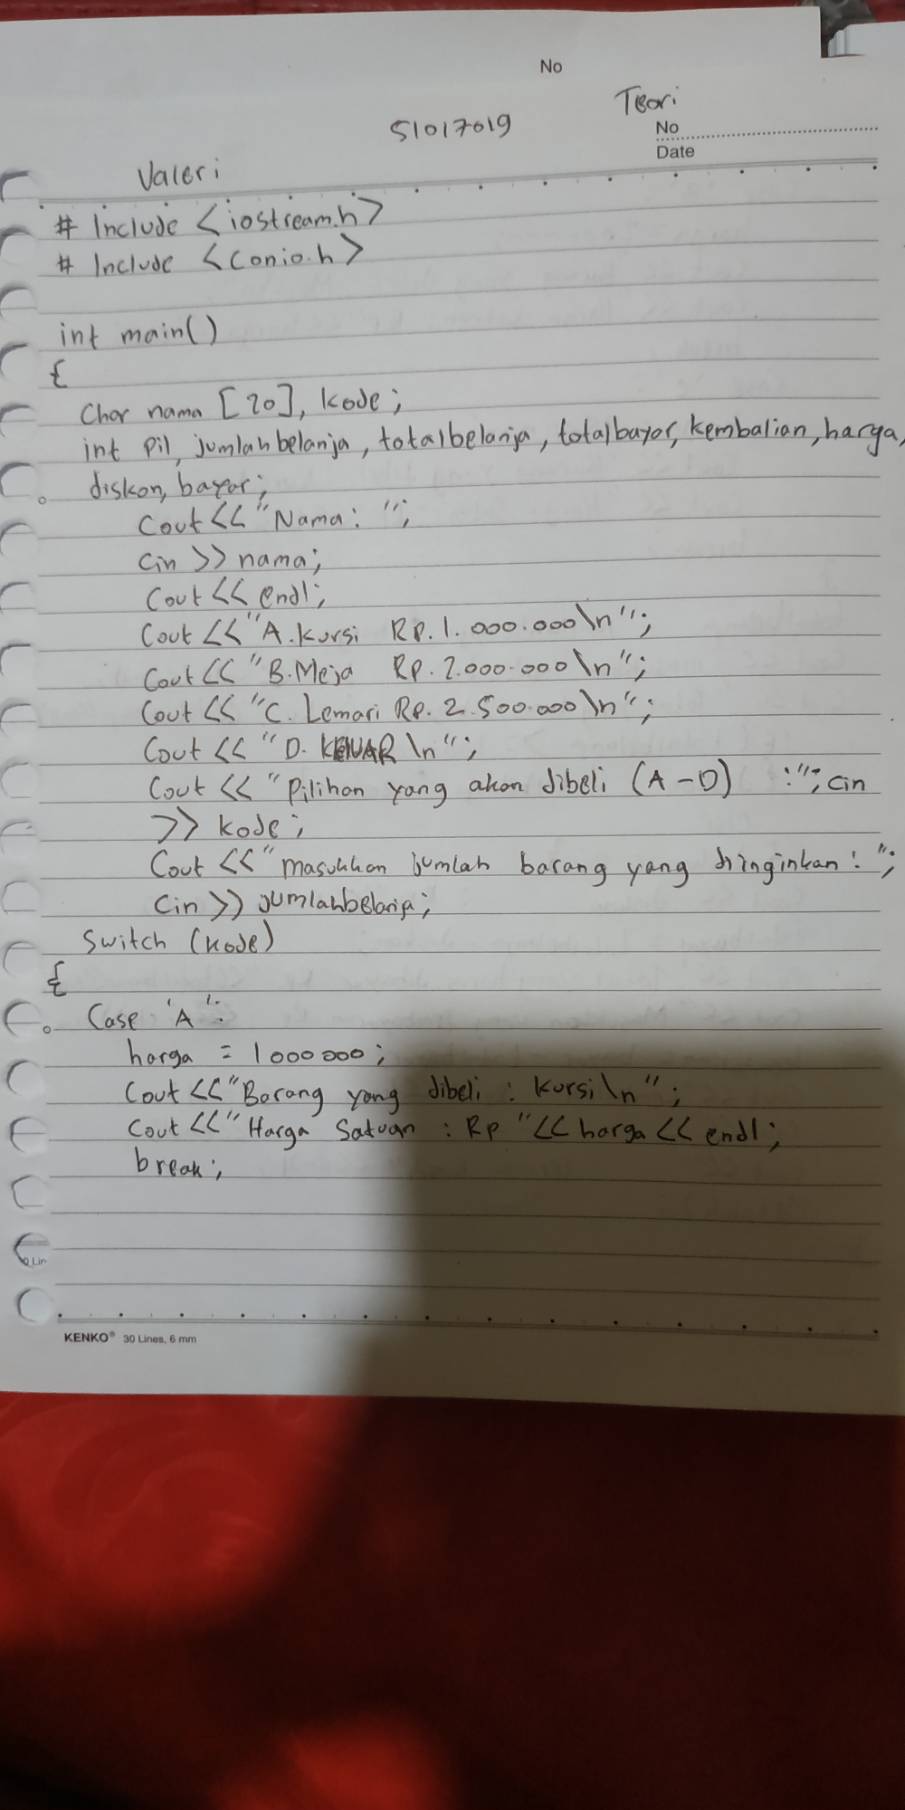 No
Teori
51017019
No
Date
Valeri
# Include <iostream.h>
# Include <conio.h>
int main()
{
Char nama [20], kode;
int pil, jumlahbelanja, totalbelanja, totalbayar, kembalian, harga,
diskon, bayar;
Cout << "Nama: ";
Cin >> nama;
Cout << endl;
Cout << "A. Kursi Rp. 1.000.000 \n";
Cout << "B. Meja Rp. 2.000.000 \n";
Cout << "C. Lemari Rp. 2.500.000 \n";
Cout << "D. KELUAR \n";
Cout << "Pilihan yang akan dibeli (A-D) :"; cin
>> kode;
Cout << "masukkan jumlah barang yang diinginkan: ";
Cin >> jumlahbelanja;
Switch (kode)
{
Case 'A':
harga = 1000000;
Cout << "Barang yang dibeli : Kursi \n";
Cout << "Harga Satuan : Rp " << harga << endl;
break;
KENKO® 30 Lines, 6 mm